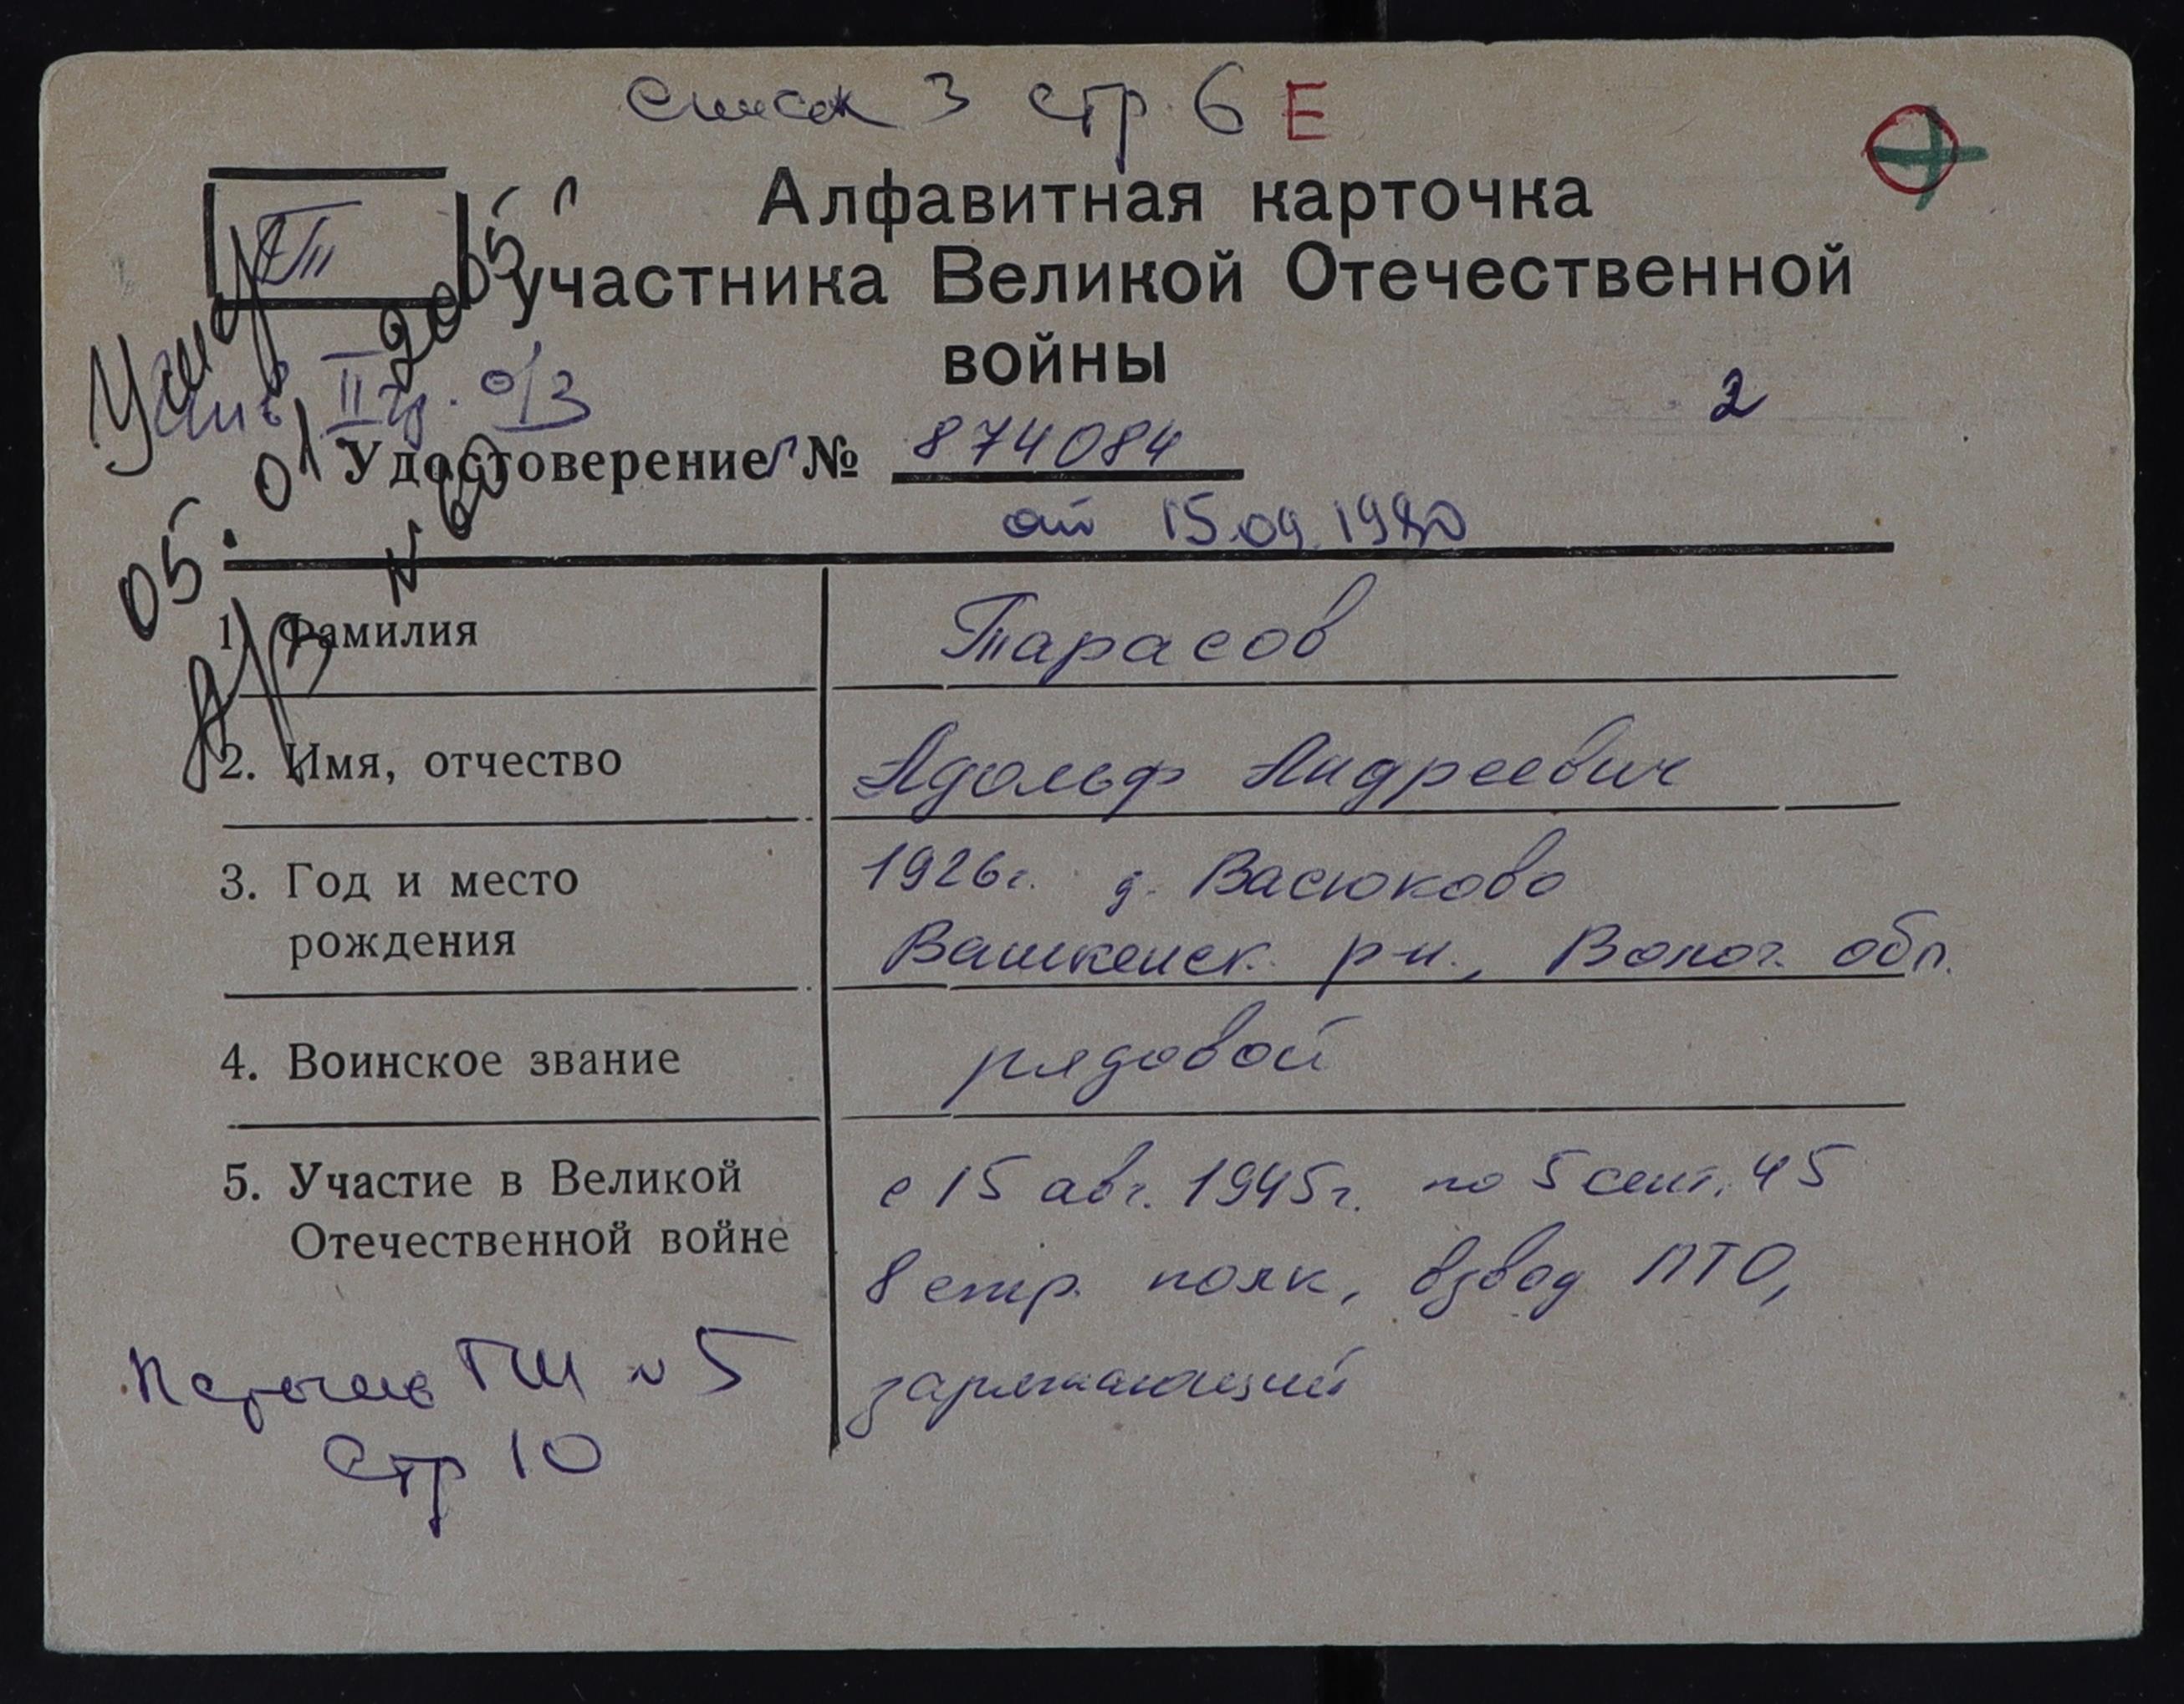 Список 3 стр. 6 Е
Алфавитная карточка
участника Великой Отечественной
войны
2
Инв II гр. о/з
Удостоверение № 874084
от 15.09.1980
Умер 05.01 2005 г
А/З № 60
1. Фамилия Тарасов
2. Имя, отчество Адольф Андреевич
3. Год и место 1926г. д. Васюково
рождения Вашкенск. р-н., Волог. обл.
4. Воинское звание рядовой
5. Участие в Великой с 15 авг. 1945г. по 5 сент. 45
Отечественной войне 8 стр. полк, взвод ПТО,
заряжающий
Перечень ГШ № 5
стр 10